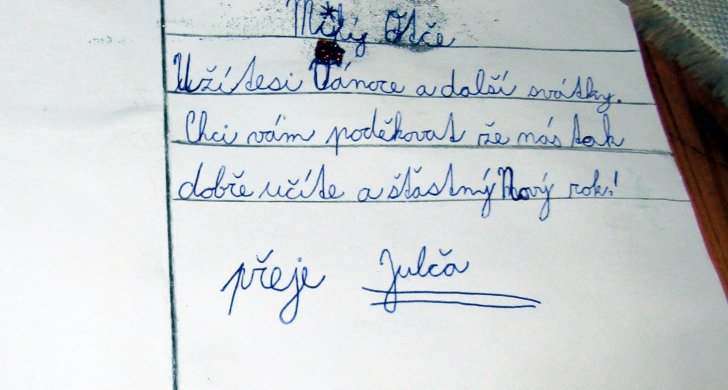 Milý Otče
Užítesi Vánoce a další svátky.
Chci vám poděkovat že nás tak
dobře učíte a šťastný Nový rok!
přeje Julča